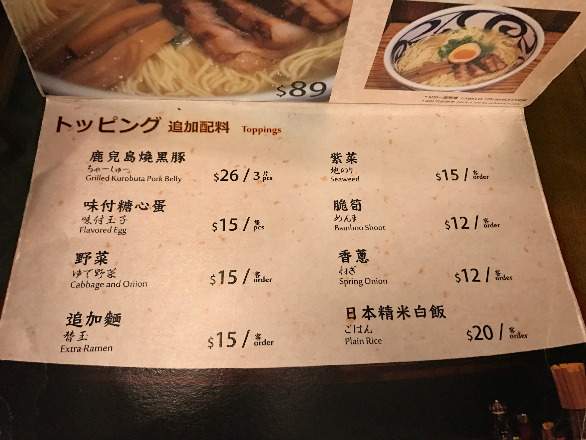 $89
トッピング 追加配料 Toppings
鹿兒島燒黑豚
ちゃーしゅー
Grilled Kurobuta Pork Belly
$26 / 3片 pcs
味付糖心蛋
味付玉子
Flavored Egg
$15 / pcs
野菜
ゆで野菜
Cabbage and Onion
$15 / 客 order
追加麵
替玉
Extra Ramen
$15 / 客 order
紫菜
地のり
Seaweed
$15 / 客 order
脆筍
めんま
Bamboo Shoot
$12 / 客 order
香蔥
ねぎ
Spring Onion
$12 / 客 order
日本精米白飯
ごはん
Plain Rice
$20 / 客 order